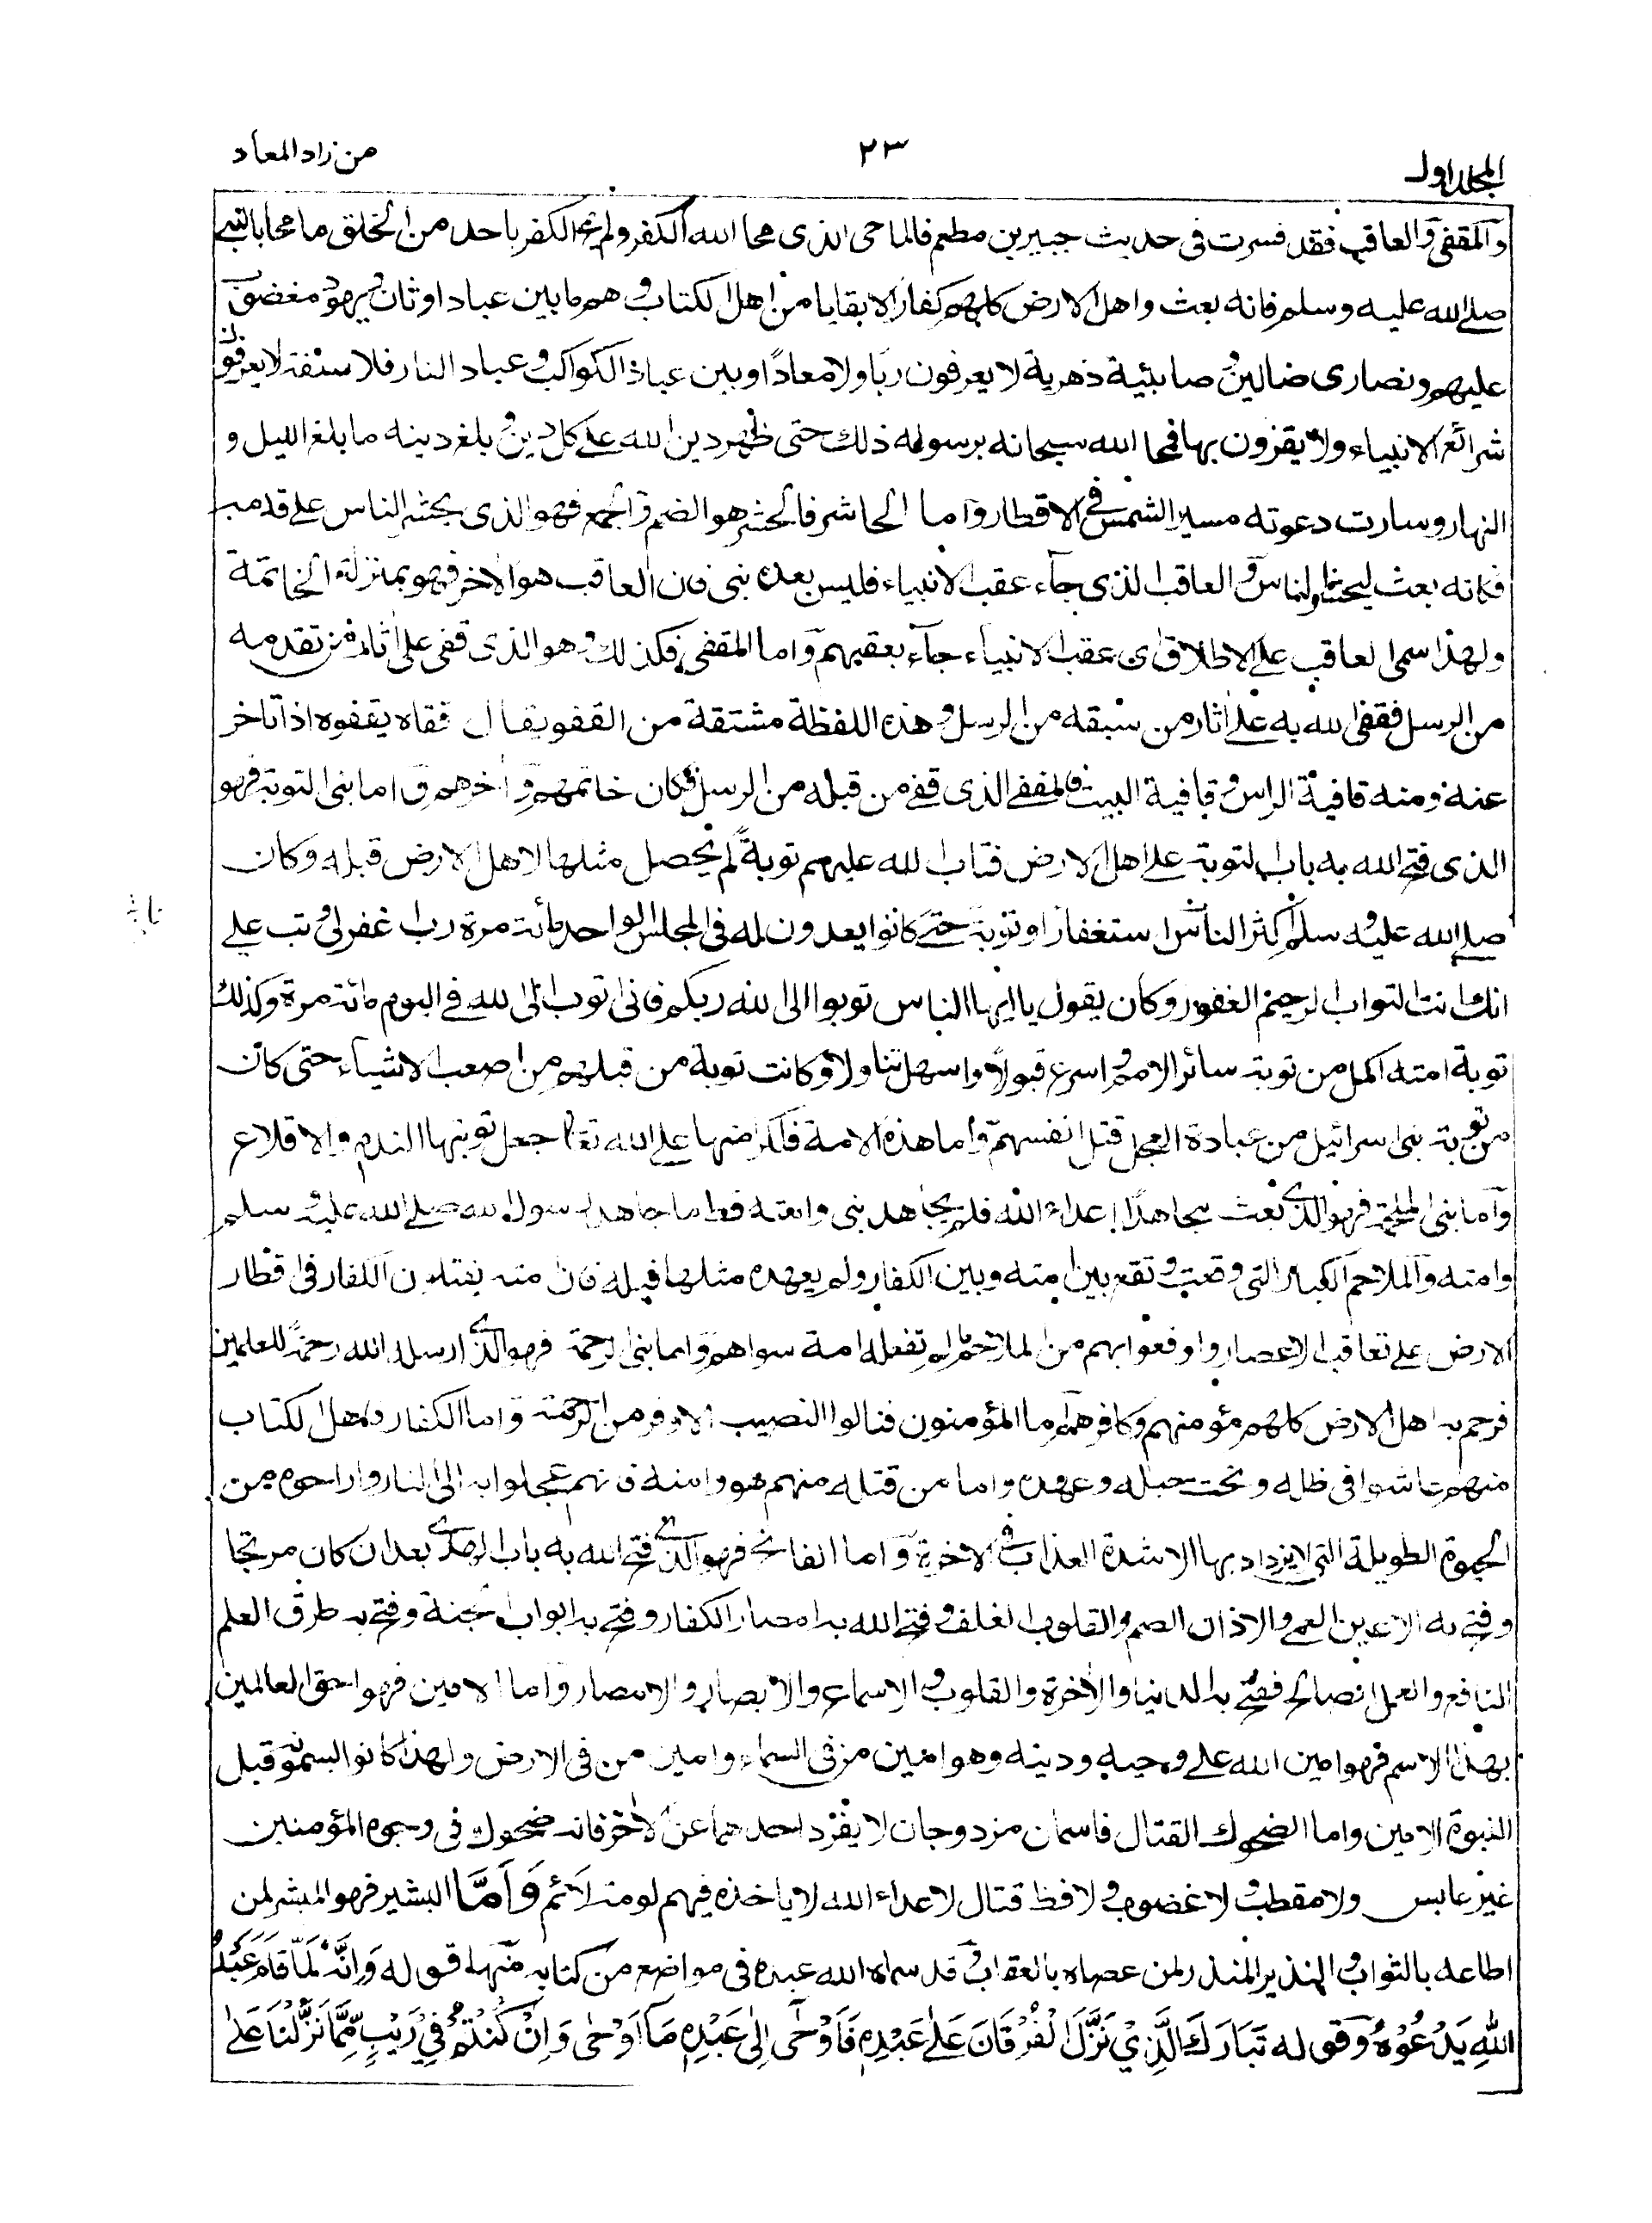 المجلد اول
٢٣
من زاد المعاد
والمقفى والعاقب فقد فسرت فى حديث جبير بن مطعم فالماحى الذى محا الله به الكفر ولم يمح الكفر باحد من الخلق ما محا بالنبى
صلى الله عليه وسلم فانه بعث واهل الارض كلهم كفار الا بقايا من اهل الكتاب وهم ما بين عباد اوثان ويهود مغضوب
عليهم ونصارى ضالين وصابئية دهرية لا يعرفون ربا ولا معادًا وبين عباد الكواكب وعباد النار وفلاسفة لا يعرفون
شرائع الانبياء ولا يقرون بها فمحا الله سبحانه برسوله ذلك حتى ظهر دين الله على كل دين وبلغ دينه ما بلغ الليل و
النهار وسارت دعوته مسير الشمس فى الاقطار واما الحاشر فالحشر هو الضم والجمع فهو الذى يحشر الناس على قدميه
فكانه بعث ليحشر الناس والعاقب الذى جآء عقب الانبياء فليس بعده نبى فان العاقب هو الاخر فهو بمنزلة الخاتمة
ولهذا سمى العاقب على الاطلاق اى عقب الانبيآء جآء بعقبهم واما المقفى فكذلك وهو الذى قفى على اثار من تقدمه
من الرسل فقفى الله به على اثار من سبقه من الرسل وهذه اللفظة مشتقة من القفو يقال قفاه يقفوه اذا تاخر
عنه ومنه قافية الراس وقافية البيت فالمقفى الذى قفى من قبله من الرسل فكان خاتمهم واخرهم واما نبى التوبة فهو
الذى فتح الله به باب التوبة على اهل الارض فتاب الله عليهم توبةً لم يحصل مثلها لاهل الارض قبله وكان
صلى الله عليه وسلم اكثر الناس استغفارا وتوبة حتى كانوا يعدون له فى المجلس الواحد مائة مرة رب اغفر لى وتب على
انك انت التواب الرحيم الغفور وكان يقول يا ايها الناس توبوا الى الله ربكم فانى اتوب الى الله فى اليوم مائة مرة وكذلك
توبة امته اكمل من توبة سائر الامم واسرع قبولًا واسهل تناولا وكانت توبة من قبلهم من اصعب الاشياء حتى كان
من توبة بنى اسرائيل من عبادة العجل قتل انفسهم واما هذه الامة فلكرامتها على الله تعا جعل توبتها الندم والاقلاع
وآما نبى الملحمة فهو الذى بعث بجهاد اعداء الله فلم يجاهد نبى وامته قط ما جاهد رسول الله صلى الله عليه وسلم
وامته والملاحم الكبار التى وقعت وتقع بين امته وبين الكفار ولم يعهد مثلها قبله فان امته يقتلون الكفار فى اقطار
الارض على تعاقب الاعصار واوقعوا بهم من الملاحم ما لم تفعله امة سواهم واما نبى الرحمة فهو الذى ارسله الله رحمة للعلمين
فرحم به اهل الارض كلهم مؤمنهم وكافرهم اما المؤمنون فنالوا النصيب الاوفر من الرحمة واما الكفار فاهل الكتاب
منهم عاشوا فى ظله وتحت حبله وعهده واما من قتله منهم هو وامته فانهم عجلوا به الى النار واراحوه من
الحيوة الطويلة التى لا يزداد بها الا شدة العذاب فى الاخرة واما الفاتح فهو الذى فتح الله به باب الهدى بعد ان كان مرتجا
وفتح به الاعين العمى والاذان الصم والقلوب الغلف وفتح الله به امصار الكفار وفتح به ابواب الجنة وفتح به طرق العلم
النافع والعمل الصالح ففتح به الدنيا والاخرة والقلوب والاسماع والابصار والامصار واما الامين فهو احق العالمين
بهذا الاسم فهو امين الله على وحيه ودينه وهو امين من فى السماء وامين من فى الارض ولهذا كانوا يسمونه قبل
النبوة الامين واما الضحوك القتال فاسمان مزدوجان لا يفرد احدهما عن الاخر فانه ضحوك فى وجوه المؤمنين
غير عابس ولا مقطب ولا غضوب ولا فظ قتال لاعداء الله لا ياخذه فيهم لومة لائم وَاَمَّا البشير فهو المبشر لمن
اطاعه بالثواب والنذير المنذر لمن عصاه بالعقاب وقد سماه الله عبده فى مواضع من كتابه منها قوله وَاِنَّهٗ لَمَّا قَامَ عَبْدُ
اللهِ يَدْعُوْهُ وقوله تَبَارَكَ الَّذِيْ نَزَّلَ الْفُرْقَانَ عَلٰى عَبْدِهٖ فَاَوْحٰى اِلٰى عَبْدِهٖ مَآ اَوْحٰى وَاِنْ كُنْتُمْ فِيْ رَيْبٍ مِّمَّا نَزَّلْنَا عَلٰى